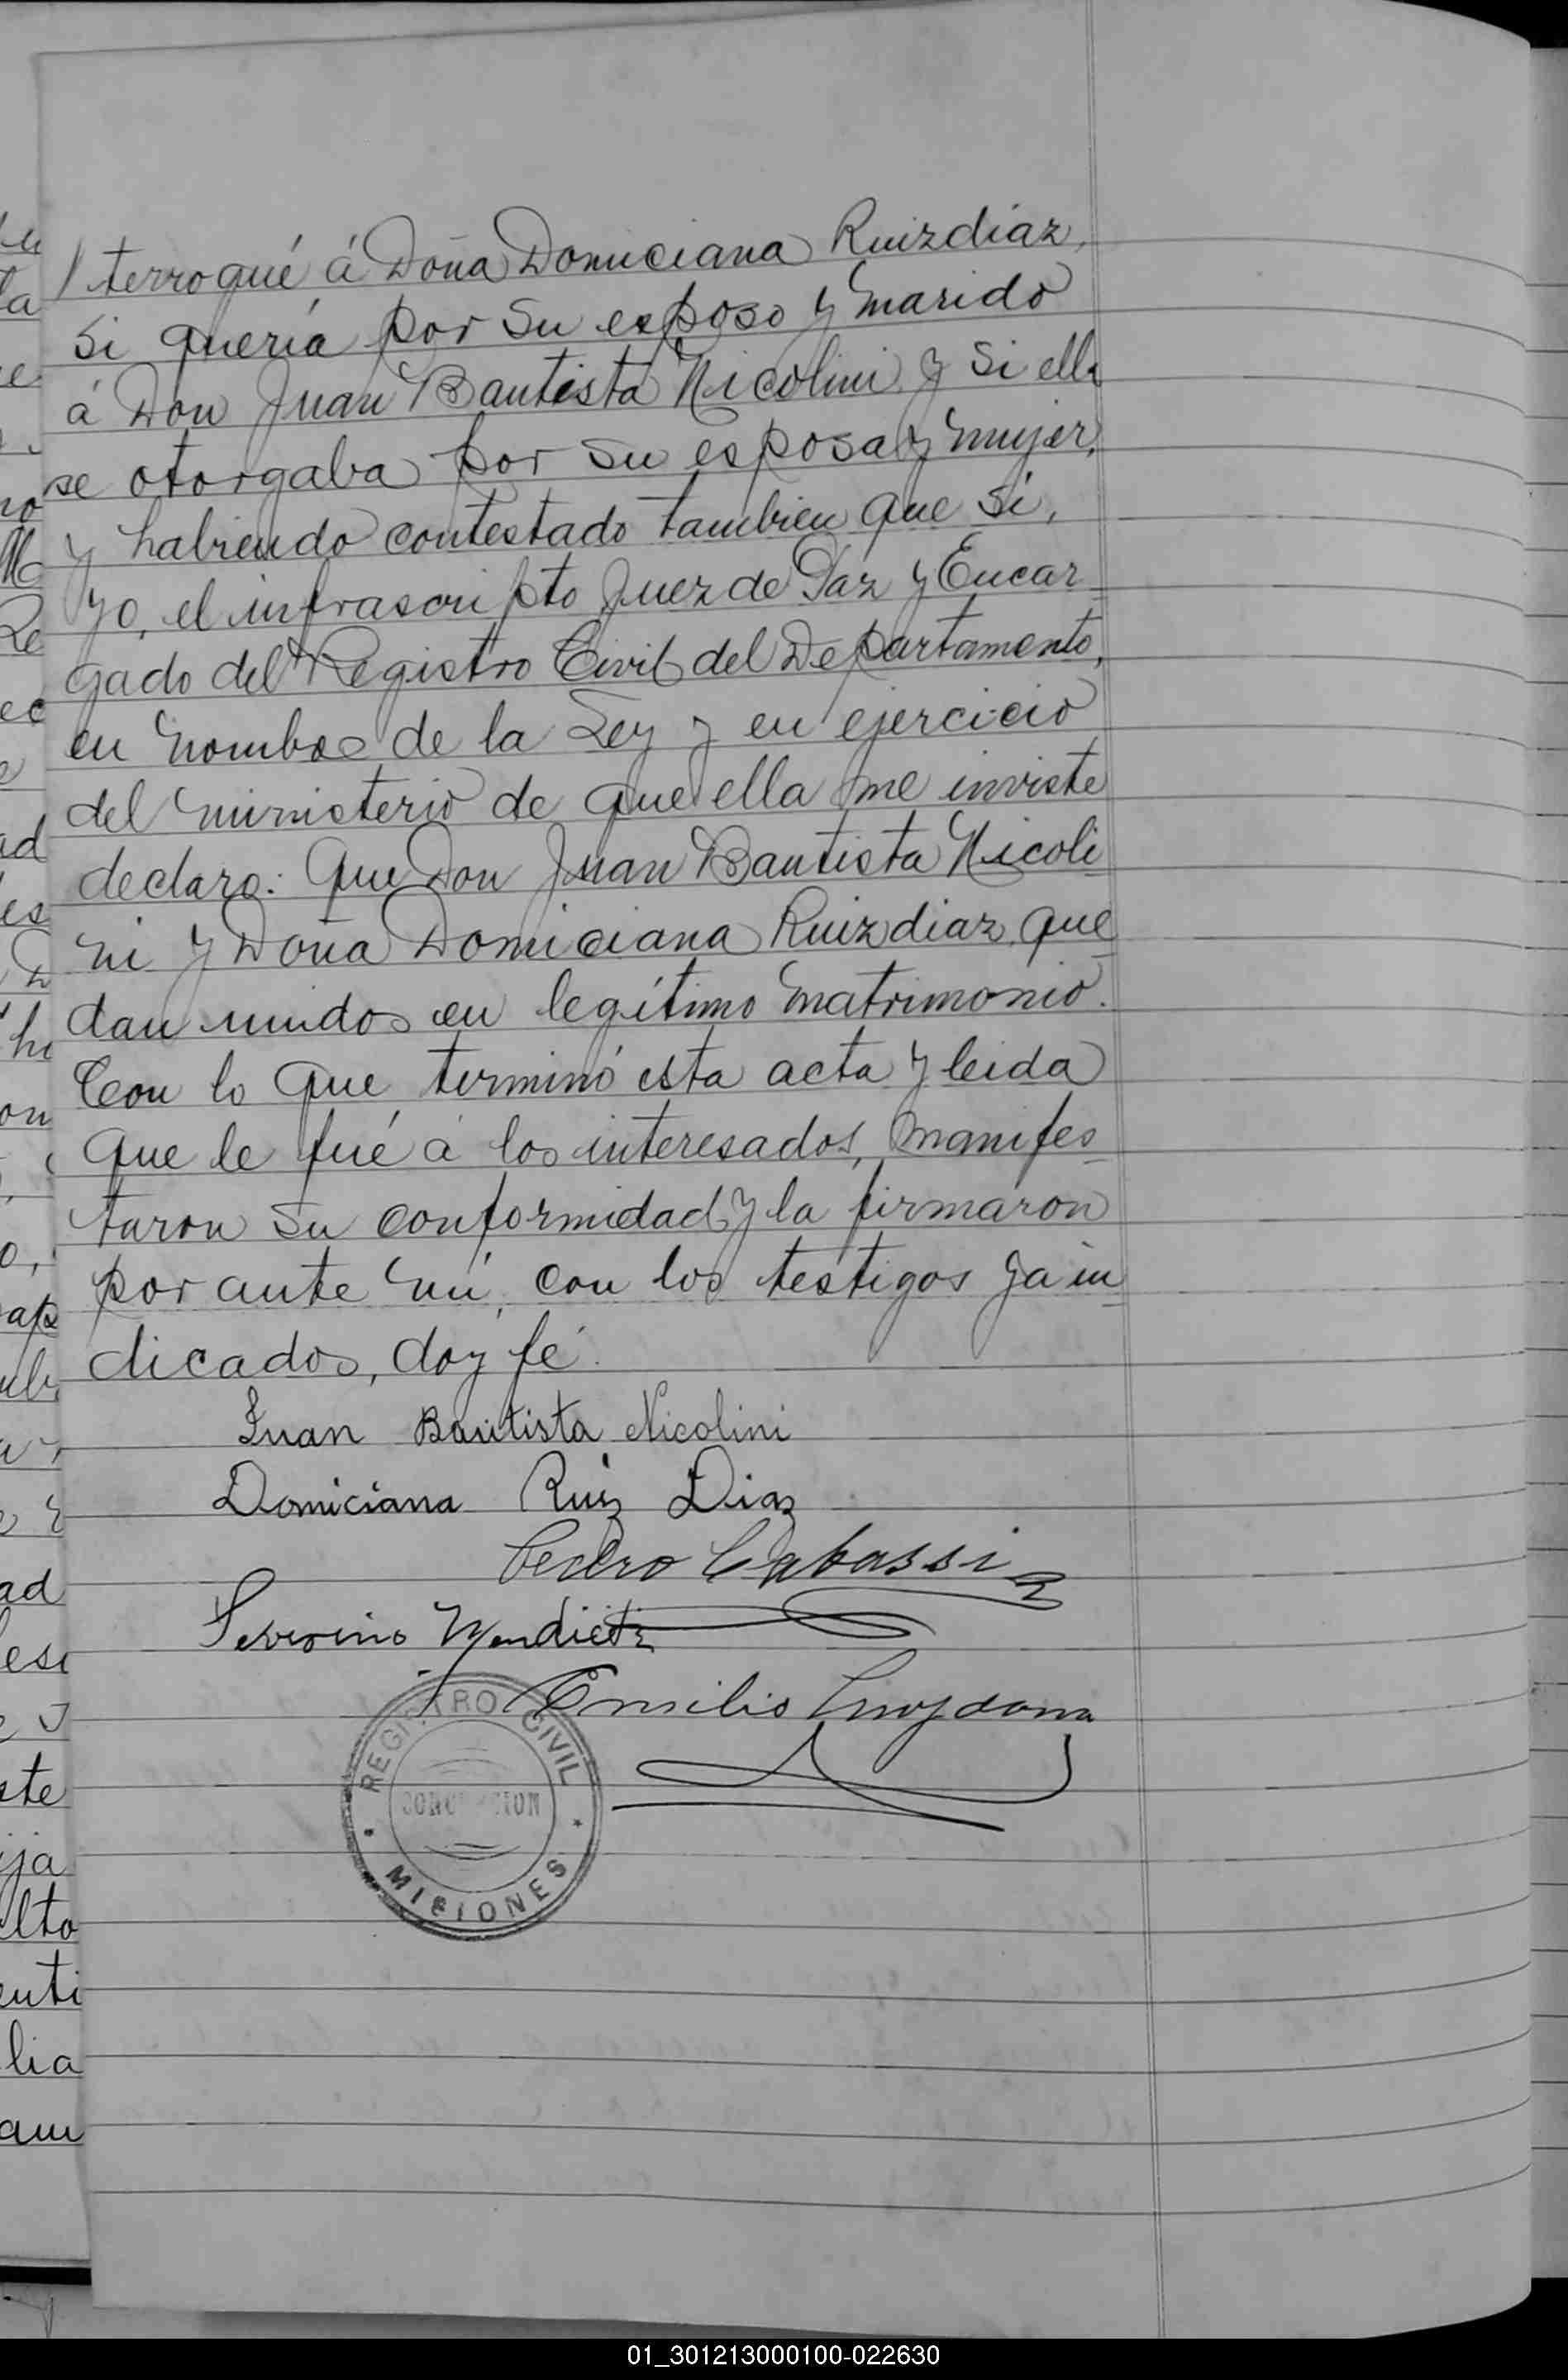 terrogué á Doña Domiciana Ruizdiaz,
si quería por su esposo y marido
á Don Juan Bautista Nicolini y si ella
se otorgaba por su esposa y mujer,
y habiendo contestado tambien que si,
yo, el infrascripto Juez de Paz y Encar
gado del Registro Civil del Departamento,
en nombre de la Ley y en ejercicio
del ministerio de que ella me inviste
declaro: Que Don Juan Bautista Nicoli
ni y Doña Domiciana Ruizdiaz, que
dan unidos en legítimo matrimonio.
Con lo que terminó esta acta y leida
que le fué á los interesados, manifes
taron su conformidad y la firmaron
por ante mí, con los testigos ya in
dicados, doy fé.
Juan Bautista Nicolini
Domiciana Ruiz Diaz
Pedro Cabassi
Severino Mendieta
Emilio
REGISTRO CIVIL
CONCEPCION
MISIONES
01_301213000100-022630